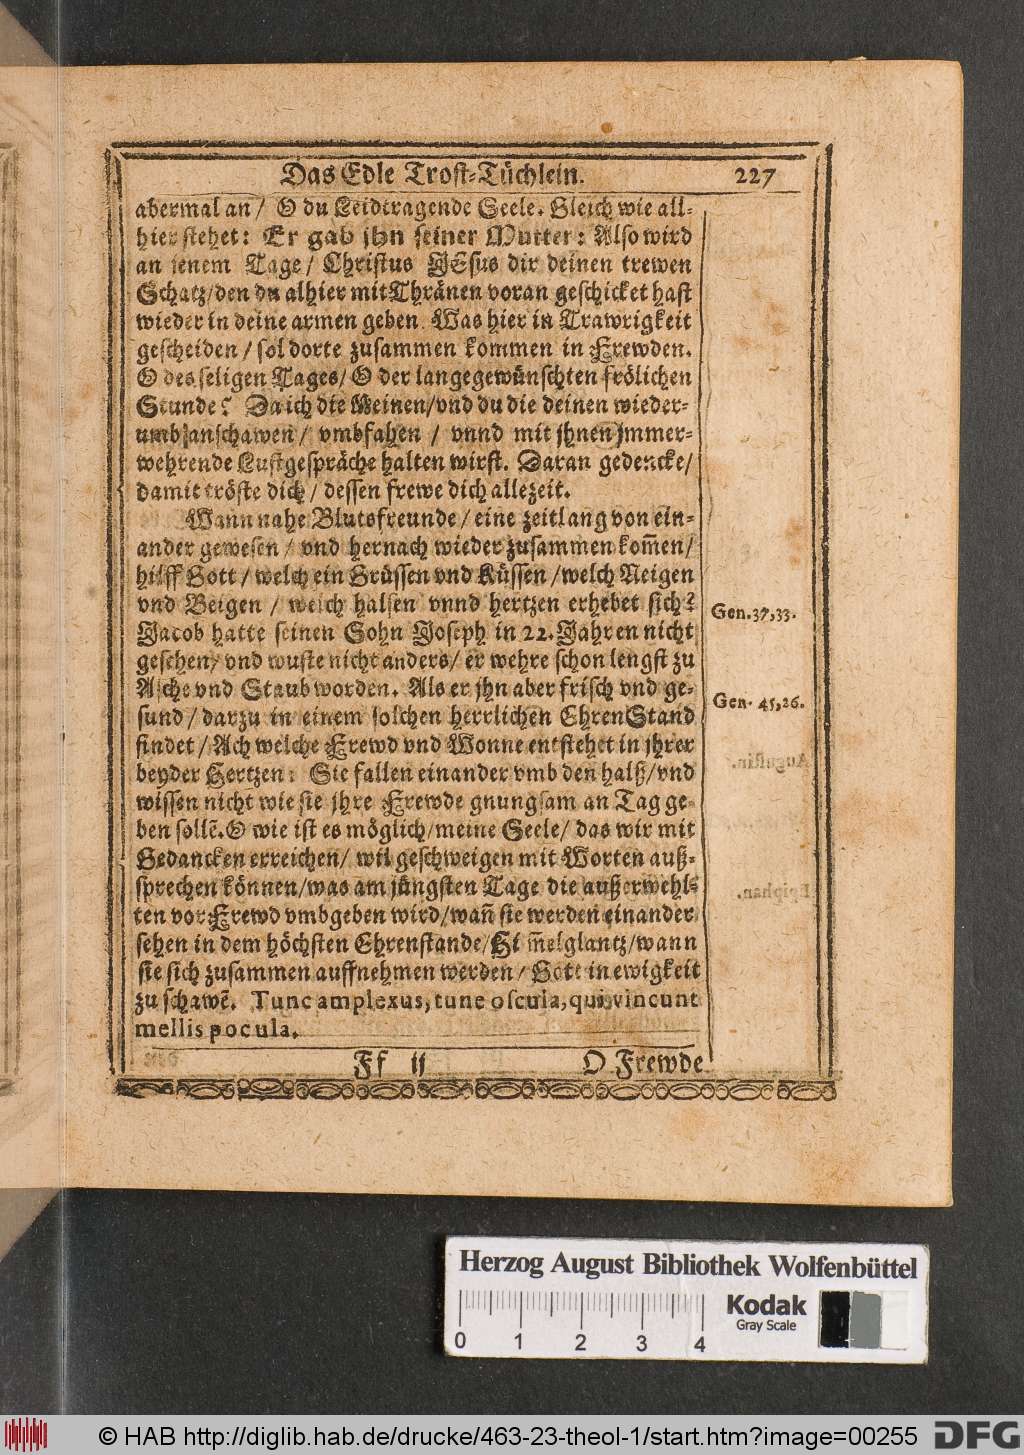 Das Edle Trost-Tüchlein. 227
abermal an / O du Leidtragende Seele. Gleich wie all-
hier stehet: Er gab jhn seiner Mutter: Also wird
an jenem Tage / Christus JEsus dir deinen trewen
Schatz/den du alhier mit Thränen voran geschicket hast
wieder in deine armen geben. Was hier in Trawrigkeit
gescheiden / sol dorte zusammen kommen in Frewden.
O des seligen Tages/ O der langegewünschten frölichen
Stunde! Da ich die Meinen/vnd du die deinen wieder-
umb anschawen / vmbfahen / vnnd mit jhnen jmmer-
wehrende Lustgespräche halten wirst. Daran gedencke/
damit tröste dich / dessen frewe dich allezeit.
Wann nahe Blutsfreunde / eine zeitlang von ein-
ander gewesen / vnd hernach wieder zusammen kom̃en/
hilff Gott / welch ein Grüssen vnd Küssen /welch Neigen
vnd Beigen / welch halsen vnnd hertzen erhebet sich?
Jacob hatte seinen Sohn Joseph in 22. Jahren nicht
gesehen/ vnd wuste nicht anders/ er wehre schon lengst zu
Asche vnd Staub worden. Als er jhn aber frisch vnd ge-
sund / darzu in einem solchen herrlichen EhrenStand
findet / Ach welche Frewd vnd Wonne entstehet in jhrer
beyder Hertzen: Sie fallen einander vmb den halß/vnd
wissen nicht wie sie jhre Frewde gnungsam an Tag ge-
ben sollẽ. O wie ist es möglich/meine Seele/ das wir mit
Gedancken erreichen/ wil geschweigen mit Worten auß-
sprechen können/was am jüngsten Tage die außerwehl-
ten vor Frewd vmbgeben wird/wañ sie werden einander
sehen in dem höchsten Ehrenstande/Him̃elglantz/wann
sie sich zusammen auffnehmen werden / Gott in ewigkeit
zu schawẽ. Tunc amplexus, tunc oscula, qui vincunt
mellis pocula.
Gen. 37,33.
Gen. 45,26.
Ff ij O Frewde
Herzog August Bibliothek Wolfenbüttel
0 1 2 3 4
Kodak
Gray Scale
© HAB http://diglib.hab.de/drucke/463-23-theol-1/start.htm?image=00255
DFG